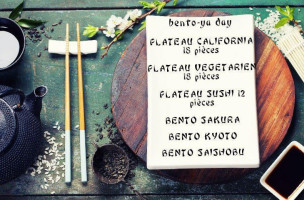 bento-ya day
FLATEAU CALIFORNIA
18 pièces
FLATEAU VEGETARIEN
18 pièces
FLATEAU SUSHI 12
pièces
BENTO SAKURA
BENTO KYOTO
BENTO SAISHOBU